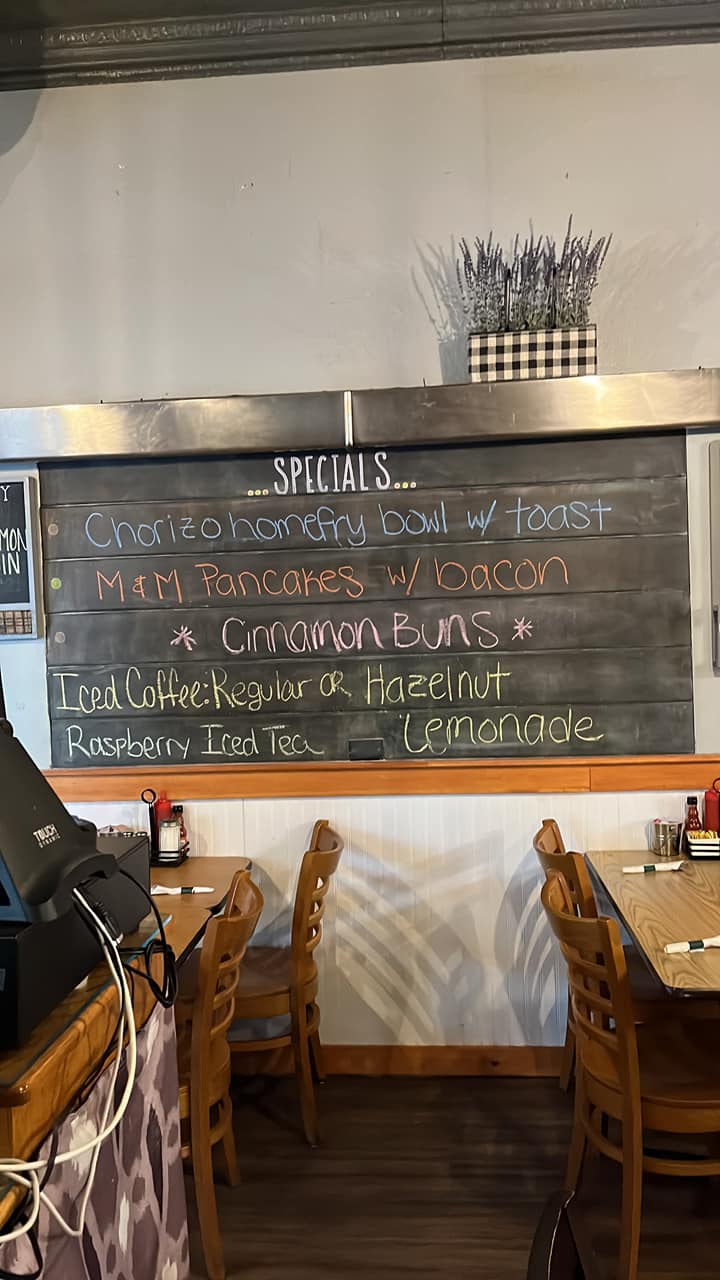 ...SPECIALS...
Chorizo homefry bowl w/ toast
M&M Pancakes w/ bacon
* Cinnamon Buns *
Iced Coffee: Regular or Hazelnut
Raspberry Iced Tea Lemonade
Y
MON
IN
TOUCH
DYNAMIC